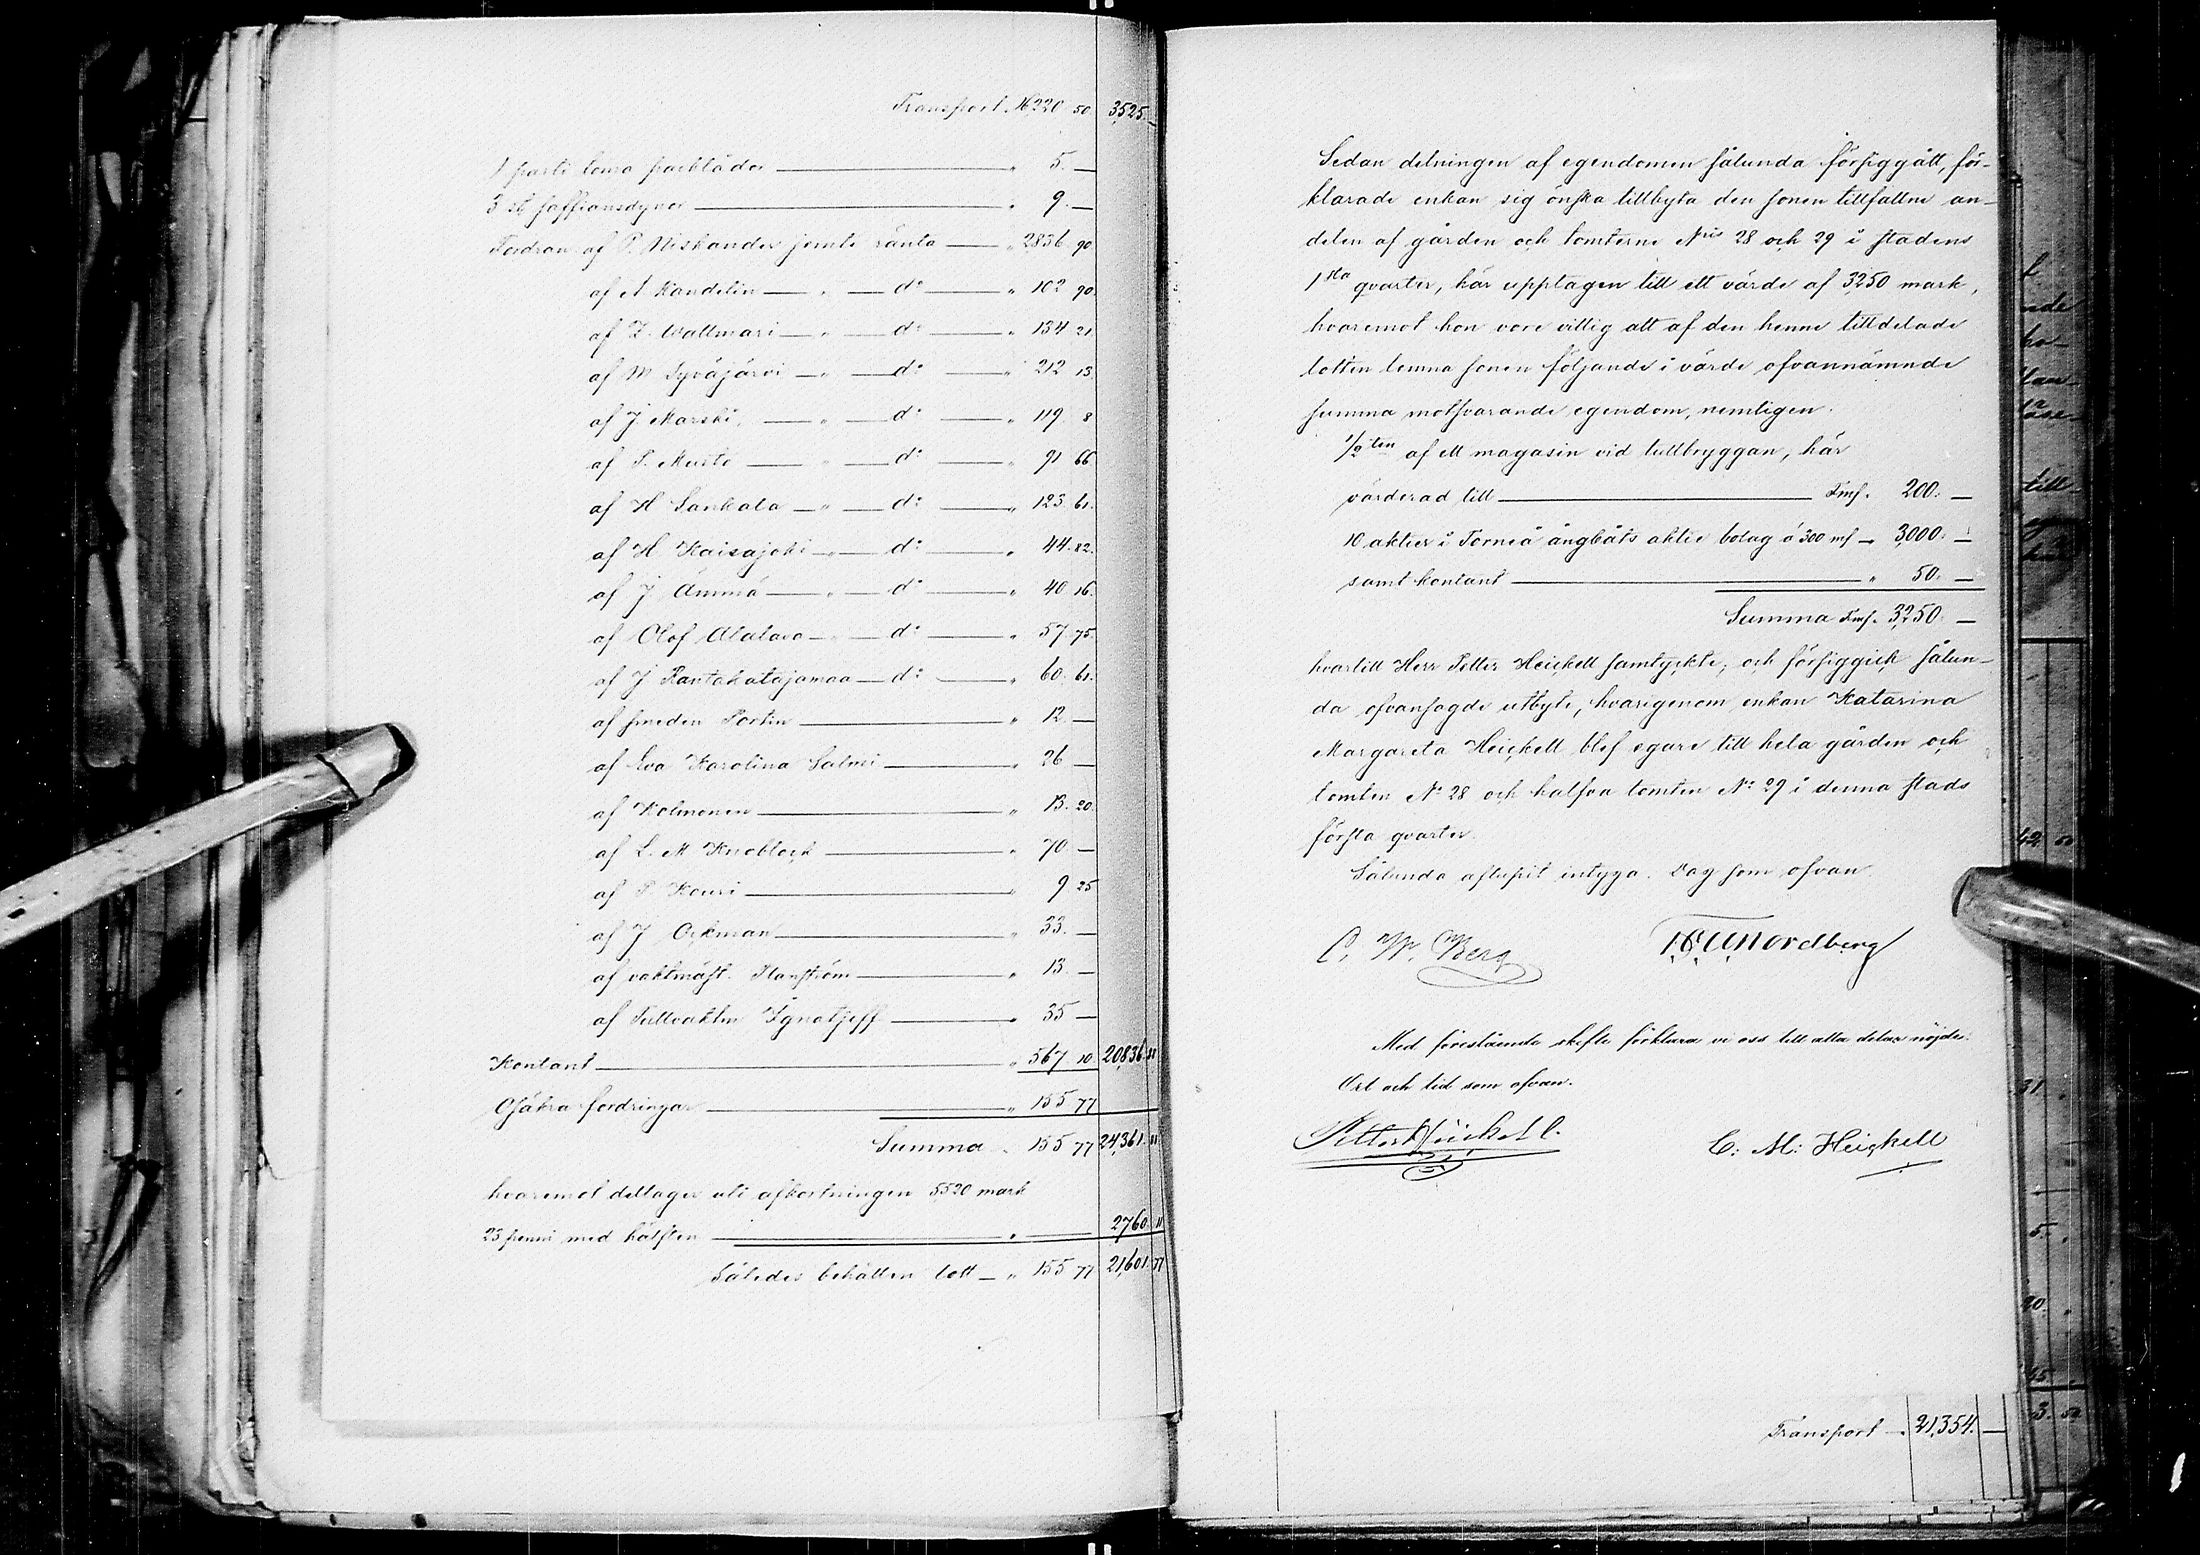 Transport „ 16,220 50. 3,525. —
1 parti toma packlådor — „ 5. —
3 st saffiansdynor — „ 9. —
Fordran af P. Niskander jemte ränta — „ 2,836 90
af A Kandelin — „ — d:o — „ 102 90.
af Z. Wallmari — „ — d:o — „ 134 21
af M Syväjärvi — „ — d:o — „ 212 13.
af J. Marski, — „ — d:o — „ 119. 8
af P. Musto — „ — d:o — „ 91 66
af H Sankala — „ — d:o — „ 123. 61.
af H. Kaisajoki — „ — d:o — „ 44. 82.
af J Ämmä — „ — d:o — „ 40 16.
af Olof Alatava — „ — d:o — „ 57. 75.
af J Rantakatajamaa — d:o — „ 60. 61.
af smeden Portin — „ 12. —
af Eva Karolina Salmi — „ 26 —
af Kolmonen — „ 13. 20.
af L. M Knobloch — „ 70. —
af P. Kouri — „ 9 25
af J Ockman — „ 33. —
af vaktmäst. Planström — „ 13. —
af Tullvaktm Ignatjeff — „ 35 —
Kontant — „ 567. 10. 20,836. 11
Osäkra fordringar — „ 155 77
Summa „ 155 77 24,361. 11
hvaremot deltager uti afkortningen 5,520 mark
23 penni med hälften — „ — 2,760. 11
Således behållen lott — „ 155 77 21,601. 77
Sedan delningen af egendomen sålunda försiggått, för-
klarade enkan sig önska tillbyta den sonen tillfallne an-
delen af gården och tomterne N:ris 28 och 29 i stadens
1sta qvarter, här upptagen till ett värde af 3,250 mark,
hvaremot hon vore villig att af den henne tilldelade
lotten lemna sonen följande i värde ofvannämnde
summa motsvarande egendom, nemligen.
1/2ten af ett magasin vid tullbryggan, här
värderad till — Fmf. 200. —
10 aktier i Torneå ångbåts aktie bolag á 300 mf — 3,000. —
samt kontant — „ 50. —
Summa Fmf. 3,250. —
hvartill Herr Petter Heickell samtyckte, och försiggick sålun-
da ofvansagde utbyte, hvarigenom enkan Katarina
Margareta Heickell blef egare till hela gården och
tomten N:o 28 och halfva tomten N:o 29 i denna stads
första qvarter.
Sålunda aflupit intyga. Dag som ofvan
C. W. Berg Nordberg
Med förestående skifte förklara vi oss till alla delar nöjde.
Ort och tid som ofvan.
Petter Heickell. C: M: Heickell
Transport — 21,354. —